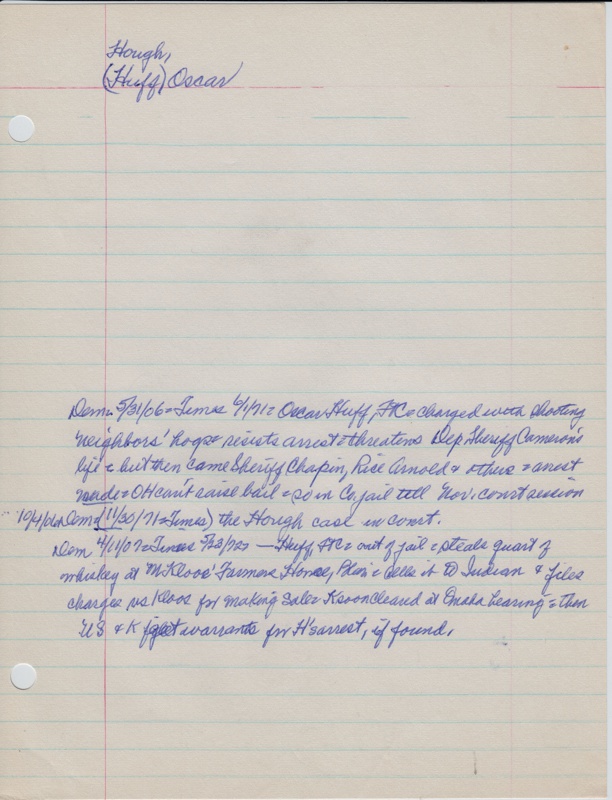 Hough,
(Huff) Oscar
Dem. 5/31/06 = Times 6/1/71 = Oscar Huff, FtC = charged with shooting
'neighbors' hogs & resists arrest = threatens Dep Sheriff Cameron's
life = but then came Sheriff Chapin, Rice Arnold & others = arrest
made = OH can't raise bail = so in Co. jail till Nov. court session
10/4/06 Dem = (11/30/71 = Times) the Hough case in court.
Dem 4/11/07 = Times 5/23/72 = — Huff, FtC = out of jail = steals quart of
whiskey at M. Kloos' Farmers Home, = sells it to Indian & files
charges vs Kloos for making sale = K soon cleared at Omaha hearing = then
US & K get warrants for H's arrest, if found.